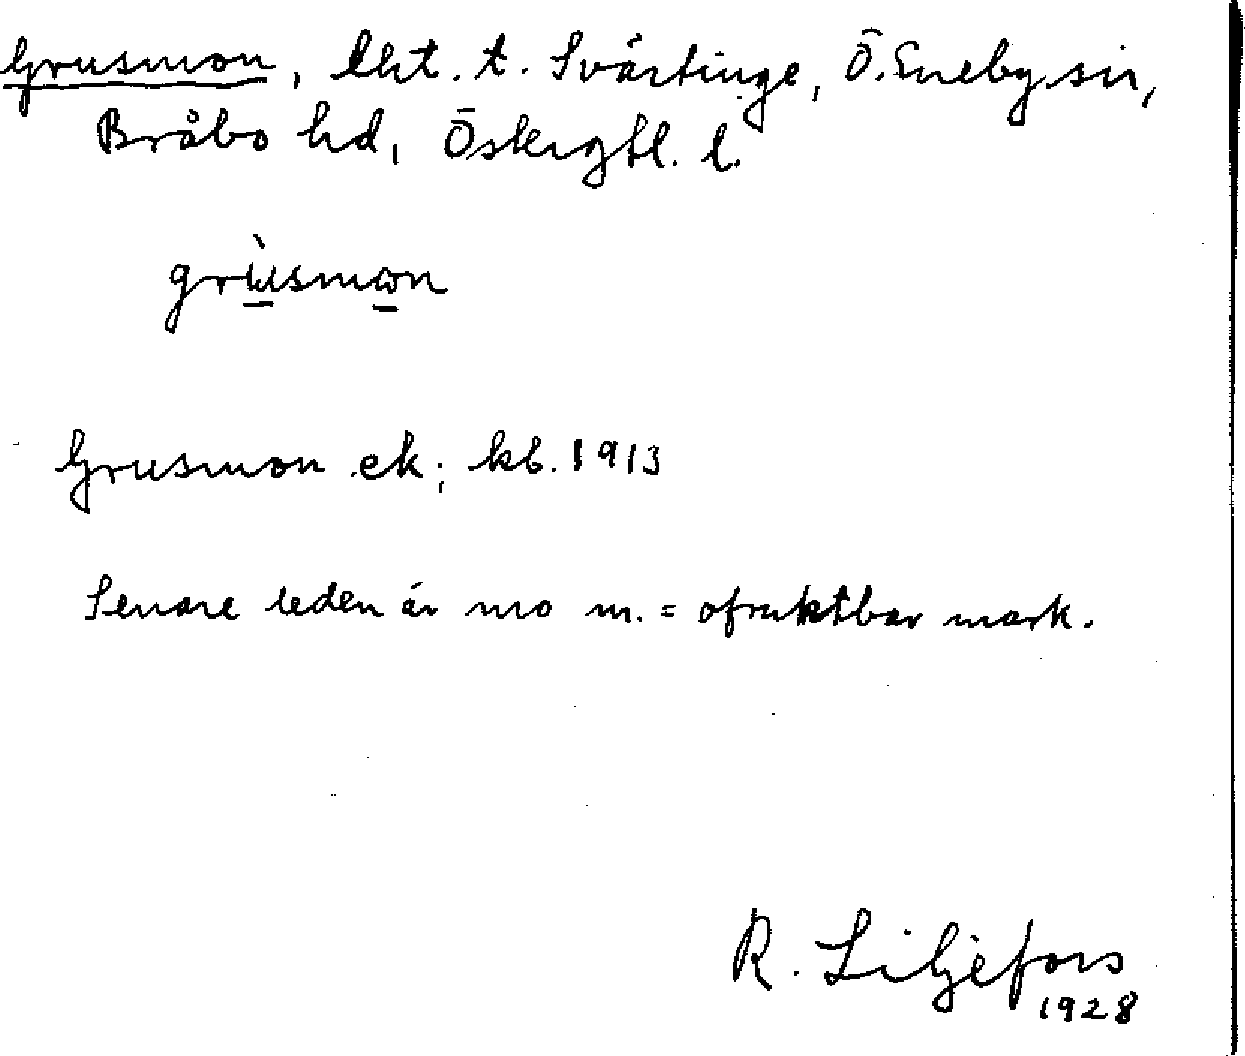 Grusmon, lht. t. Svärtinge, Ö. Eneby sn,
Bråbo hd, Östergtl. l.
grùsmon
Grusmon ek; kb. 1913
Senare leden är mo m. = ofruktbar mark.
R. Liljefors
1928